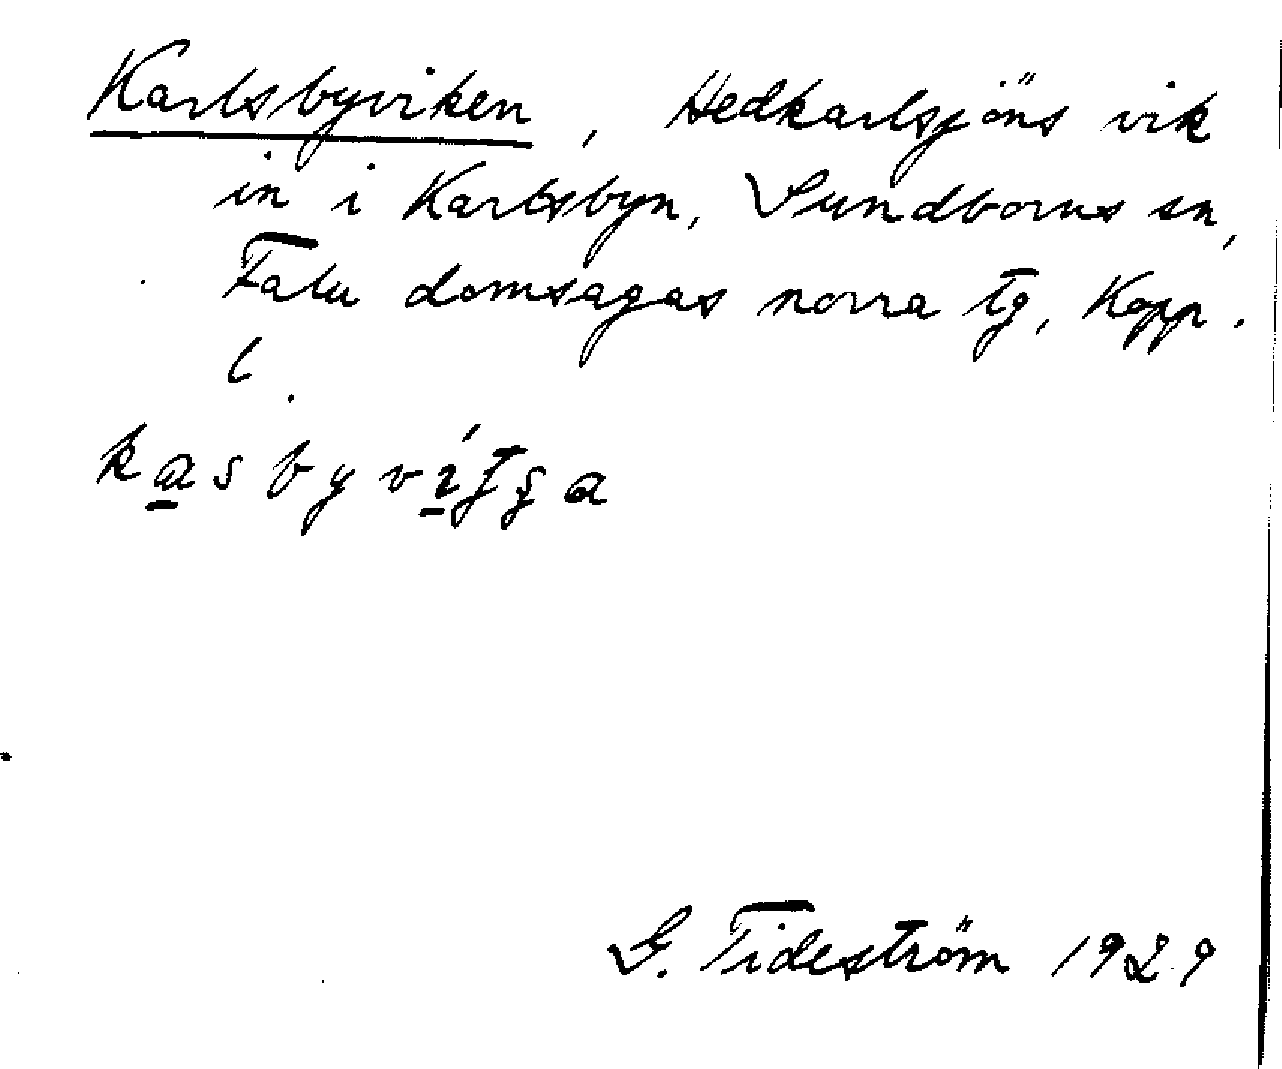 Karlsbyviken, Hedkarlsjöns vik
in i Karlsbyn, Sundborns sn,
Falu domsagas norra tg, Kopp.
l.
G. Tideström 1929